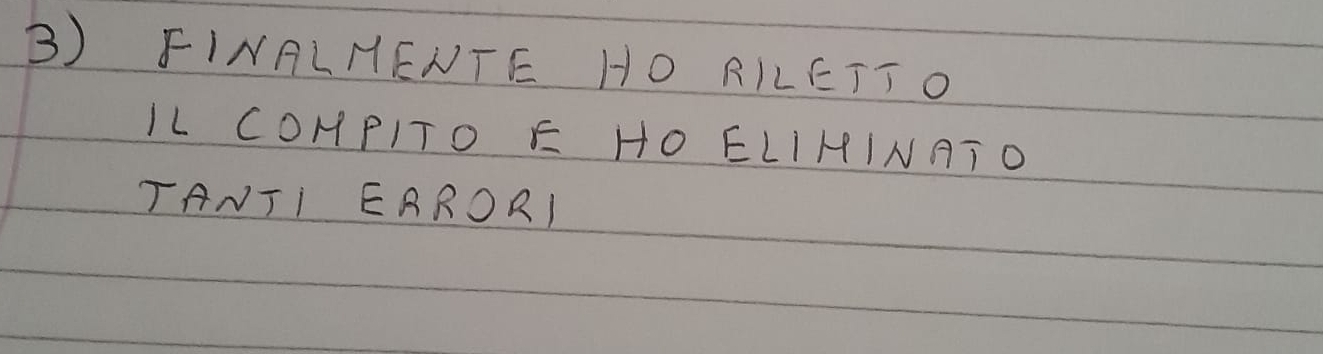 3) FINALMENTE HO RILETTO
IL COMPITO E HO ELIMINATO
TANTI ERRORI